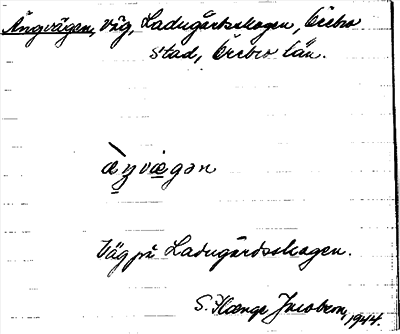 Ängvägen, Väg, Ladugårdsskogen, Örebro
stad, Örebro län.
ä̀ŋvægən
Väg på Ladugårdsskogen.
S. Hænge Jacobson, 1944.